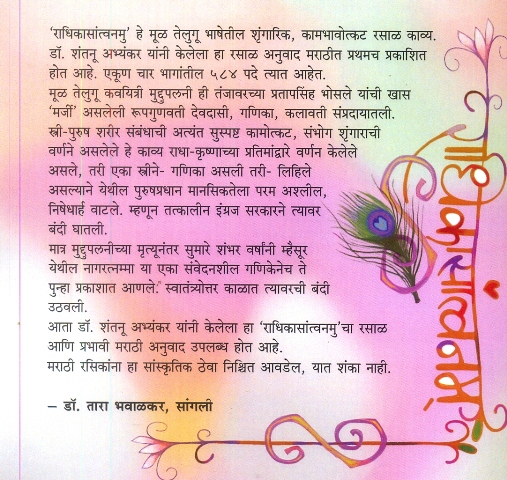 'राधिकासांत्वनमु' हे मूळ तेलुगू भाषेतील शृंगारिक, कामभावोत्कट रसाळ काव्य.
डॉ. शंतनू अभ्यंकर यांनी केलेला हा रसाळ अनुवाद मराठीत प्रथमच प्रकाशित
होत आहे. एकूण चार भागांतील ५८४ पदे त्यात आहेत.
मूळ तेलुगू कवयित्री मुद्दुपलनी ही तंजावरच्या प्रतापसिंह भोसले यांची खास
'मर्जी' असलेली रूपगुणवती देवदासी, गणिका, कलावती संप्रदायातली.
स्त्री-पुरुष शरीर संबंधाची अत्यंत सुस्पष्ट कामोत्कट, संभोग शृंगाराची
वर्णने असलेले हे काव्य राधा-कृष्णाच्या प्रतिमांद्वारे वर्णन केलेले
असले, तरी एका स्त्रीने- गणिका असली तरी- लिहिले
असल्याने येथील पुरुषप्रधान मानसिकतेला परम अश्लील,
निषेधार्ह वाटले. म्हणून तत्कालीन इंग्रज सरकारने त्यावर
बंदी घातली.
मात्र मुद्दुपलनीच्या मृत्यूनंतर सुमारे शंभर वर्षांनी म्हैसूर
येथील नागरत्नम्मा या एका संवेदनशील गणिकेनेच ते
पुन्हा प्रकाशात आणले. स्वातंत्र्योत्तर काळात त्यावरची बंदी
उठवली.
आता डॉ. शंतनू अभ्यंकर यांनी केलेला हा 'राधिकासांत्वनमु'चा रसाळ
आणि प्रभावी मराठी अनुवाद उपलब्ध होत आहे.
मराठी रसिकांना हा सांस्कृतिक ठेवा निश्चित आवडेल, यात शंका नाही.
– डॉ. तारा भवाळकर, सांगली
राधिकासांत्वनमु